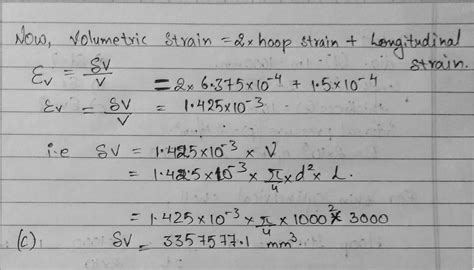 Now, Volumetric Strain = 2 x hoop strain + Longitudinal
strain.
εv = δV/V = 2x 6.375x10^-4 + 1.5x10^-4
εv = δV/V = 1.425x10^-3
i.e δV = 1.425x10^-3 x V
= 1.425x10^-3 x π/4 x d^2 x L.
= 1.425x10^-3 x π/4 x 1000^2 x 3000
(c) δV = 3357577.1 mm^3.